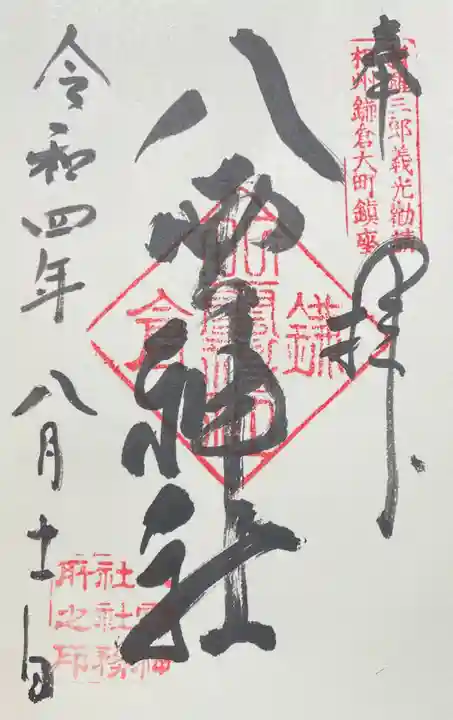 奉拝
新羅三郎義光勧請
相州鎌倉大町鎮座
八雲神社
鎌倉
令和四年八月十一日
社務
所之印